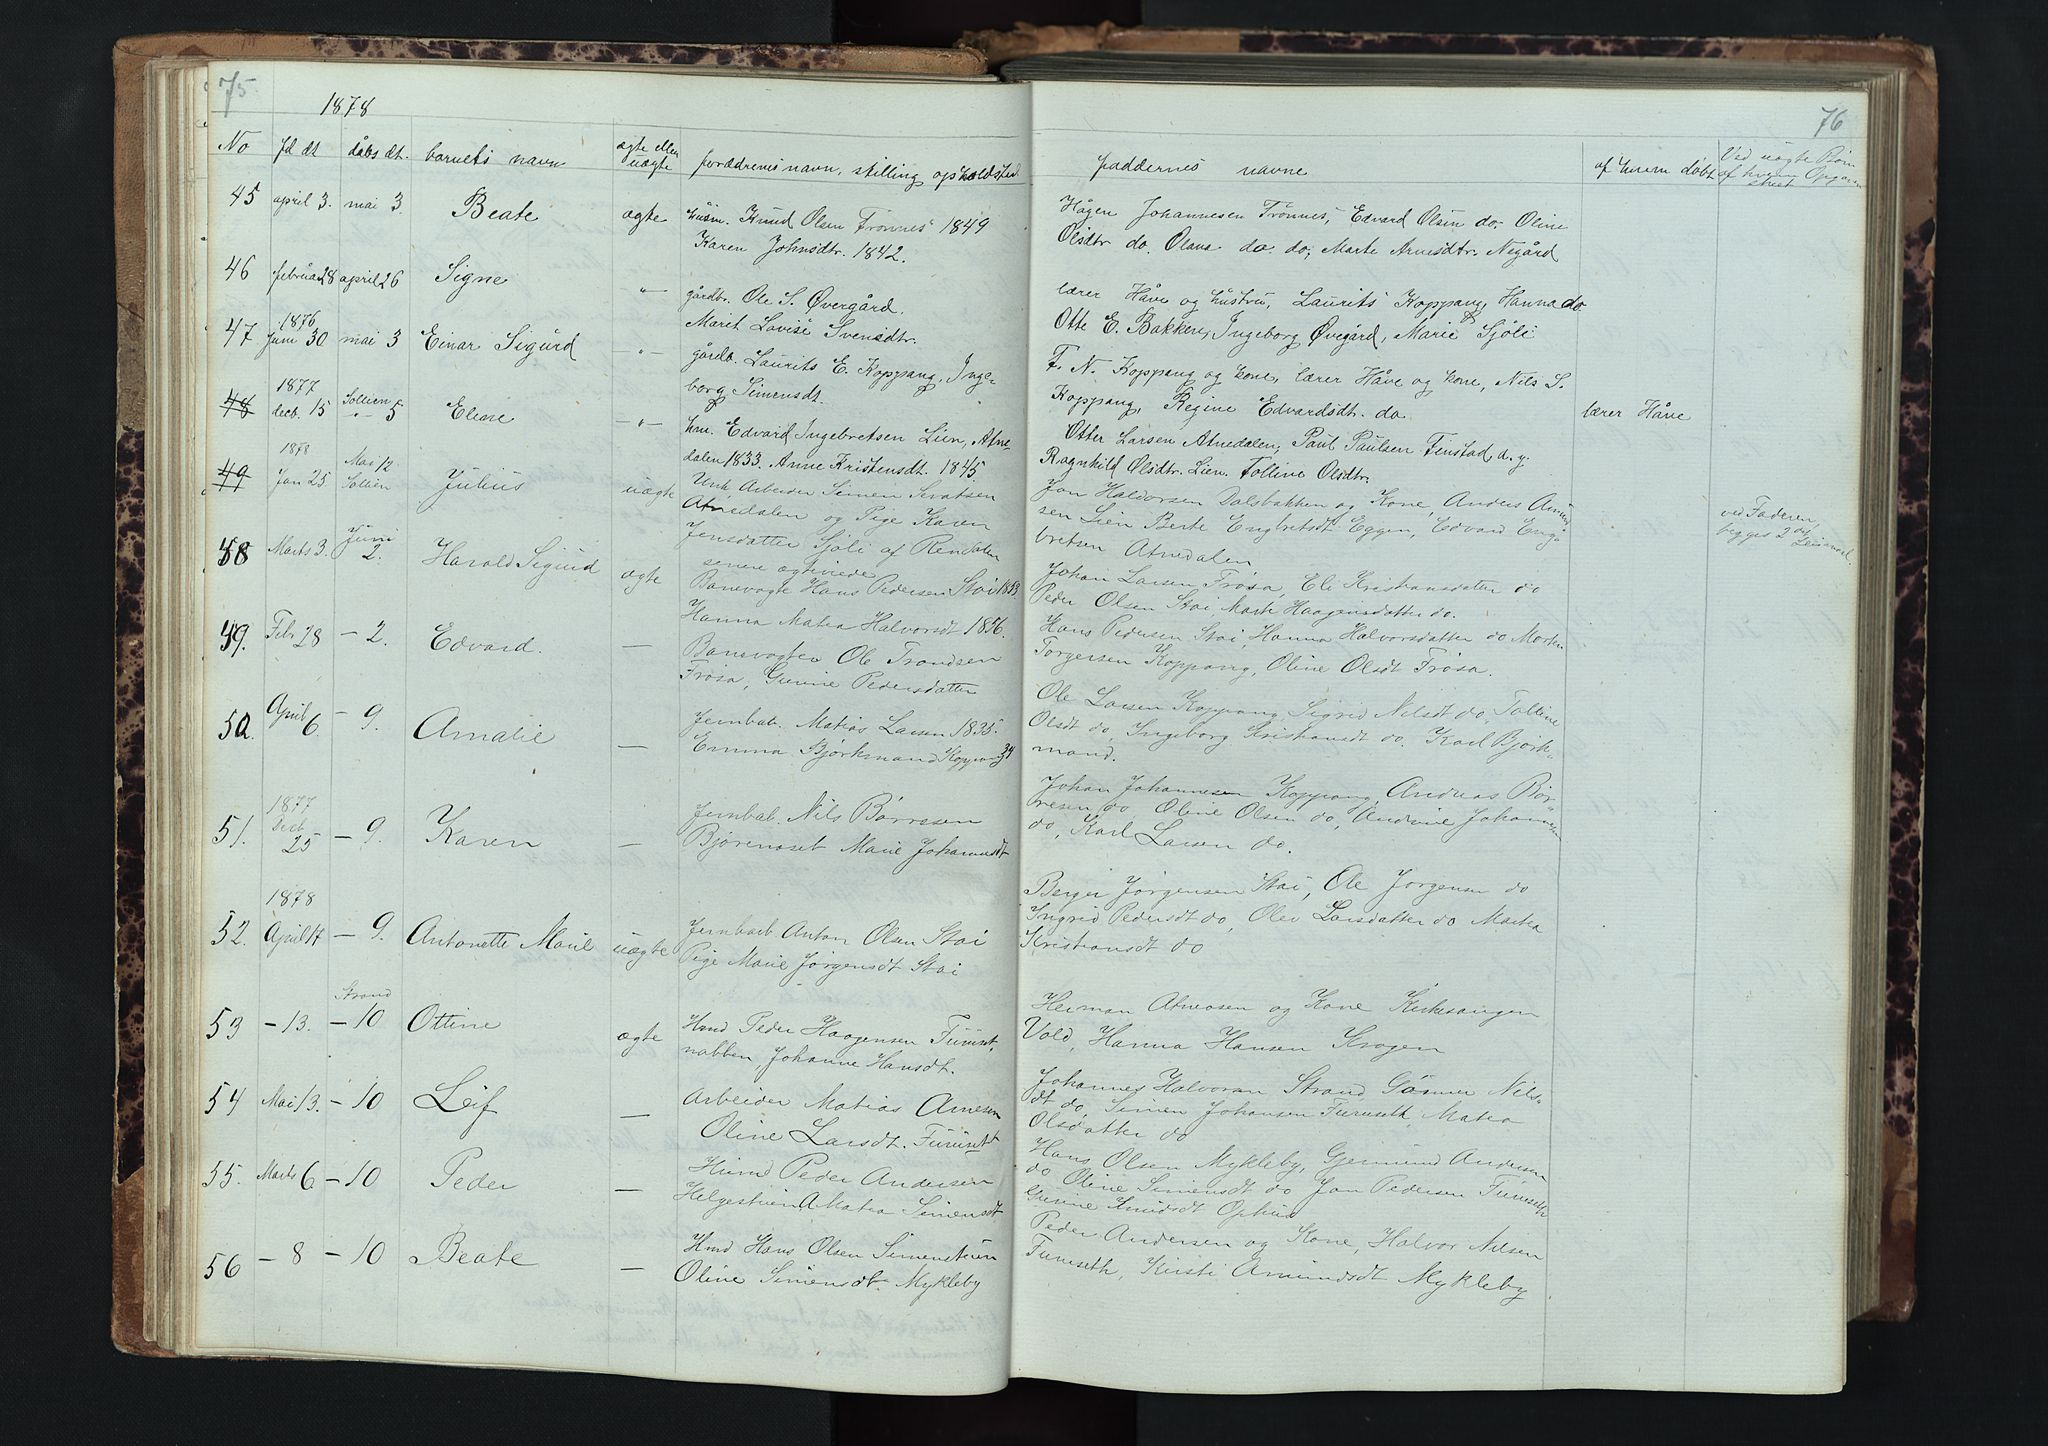 75
1878
No fd dt dåbs dt. barnets navn ægte eller uægte forældrenes navn, stilling opholdssted
45 april 3. mai 3. Beate ægte husm. Knud Olsen Trønnes 1849
Karen Johnsdtr. 1842.
46 februar 28 april 26 Signe -"- gårdbr. Ole S. Øvergård.
Marit Lovise Svensdtr.
1876
47 Juni 30 mai 3 Einar Sigurd -"- gårdb. Laurits E. Koppang, Inge-
borg Simensdt.
1877 Sollien
48 decb. 15 -"- 5 Eline -"- hm. Edvard Ingebretsen Lien, Atne-
dalen 1833. Anne Kristensdt. 1845
1878 Mai 12
49 Jan 25 Sollien Julius uægte Unk Arbeider Simen
Atnedalen og Pige Karen
Jensdatter Sjöli af Rendalen
senere ægteviede
48 Marts 3. Juni 2. Harald Sigurd ægte Banevogte Hans Pedersen Stai 1853
Hanna Matea Halvorsdt 1856.
49. Febr 28 - 2. Edvard. — Banevogter Ole Trondsen
Trøsa, Gunine Pedersdatter
50. April 6. - 9. Amalie — Jernbab. Matias Larsen 1835.
Emma Bjørkmand Koppang 34
1877
51. Decb 25 - 9. Karen — Jernbab. Nils Børresen
Bjørenaset Marie Johannesdt
1878
52. April 14 - 9. Antonette Marie uægte Jernbarb Anton Olsen Stai
Pige Marie Jørgensdt Stai
Strand
53 - 13. - 10 Ottine ægte Hmd Peder Haagensen Furuset,
nabben, Johanne Hansdt.
54 Mai 13. - 10 Leif — Arbeider Matias Arnesen
Oline Larsdt. Furuset
55. Marts 6 - 10 Peder — Husmd Peder Andersen
Helgestuen Matea Simensdt
56 - 8 - 10 Beate — Hmd Hans Olsen Simenstuen
Oline Simensdt Mykleby
76
faddernes navne af hvem døbt Ved uægte Børn
af hvem Opgaven
skeet
Hågen Johannesen Trönnes, Edvard Olsen do. Oline
Olsdtr do. Olava do do; Marte Arnesdtr. Negård
lærer Håve og hustru, Laurits Koppang, Hanna do.
Otte E. Bakken, Ingeborg Øvegård, Marie Sjöli
F. N. Koppang og kone, lærer Håve og kone, Nils S.
Koppang, Regine Edvardsdt. do lærer Håve
Otter Larsen Atnedalen, Paul Paulsen Finstad d. y.
Ragnhild Olsdtr. Lien. Tolline Olsdtr.
Jon Haldorsen Dalsbakken og Kone, Anders Amund-
sen Lien Berte Engbretsdt Eggen, Edvard Eng-
bretsen Atnedalen
ved Faderen,
begges 2det Leiermaal.
Johan Larsen Trøsa, Eli Kristiansdatter do
Peder Olsen Stai Marte Haagensdatter do.
Hans Pedersen Stai, Hanna Halvorsdatter do Morten
Torgersen Koppang, Oline Olsdt Trøsa.
Ole Larsen Koppang Sigrid Nilsdt do, Tolline
Olsdt do, Ingeborg Kristiansdt do. Karl Bjørk-
mand.
Johan Johannesen Koppang, Andreas Bør-
resen do, Oline Olsen do, Andrine Johannesen
do, Karl Larsen do.
Berger Jørgensen Stai, Ole Jørgensen do
Ingrid Pedersdt do, Olev Larsdatter do Martea
Kristiansdt do
Herman Atneosen og Kone Kirkesangen
Vold, Hanna Hansen Krogen
Johannes Halvorsen Strand Gønner Nils-
dt do, Simen Johansen Furuseth, Matea
Olsdatter do
Hans Olsen Mykleby, Gjermund Andersen
do Oline Simensdt do Jon Pedersen Furuseth
Gunine Knudsdt Ophus
Peder Andersen og Kone, Halvor Nilsen
Furuseth, Kirsti Amundsdt Mykleby